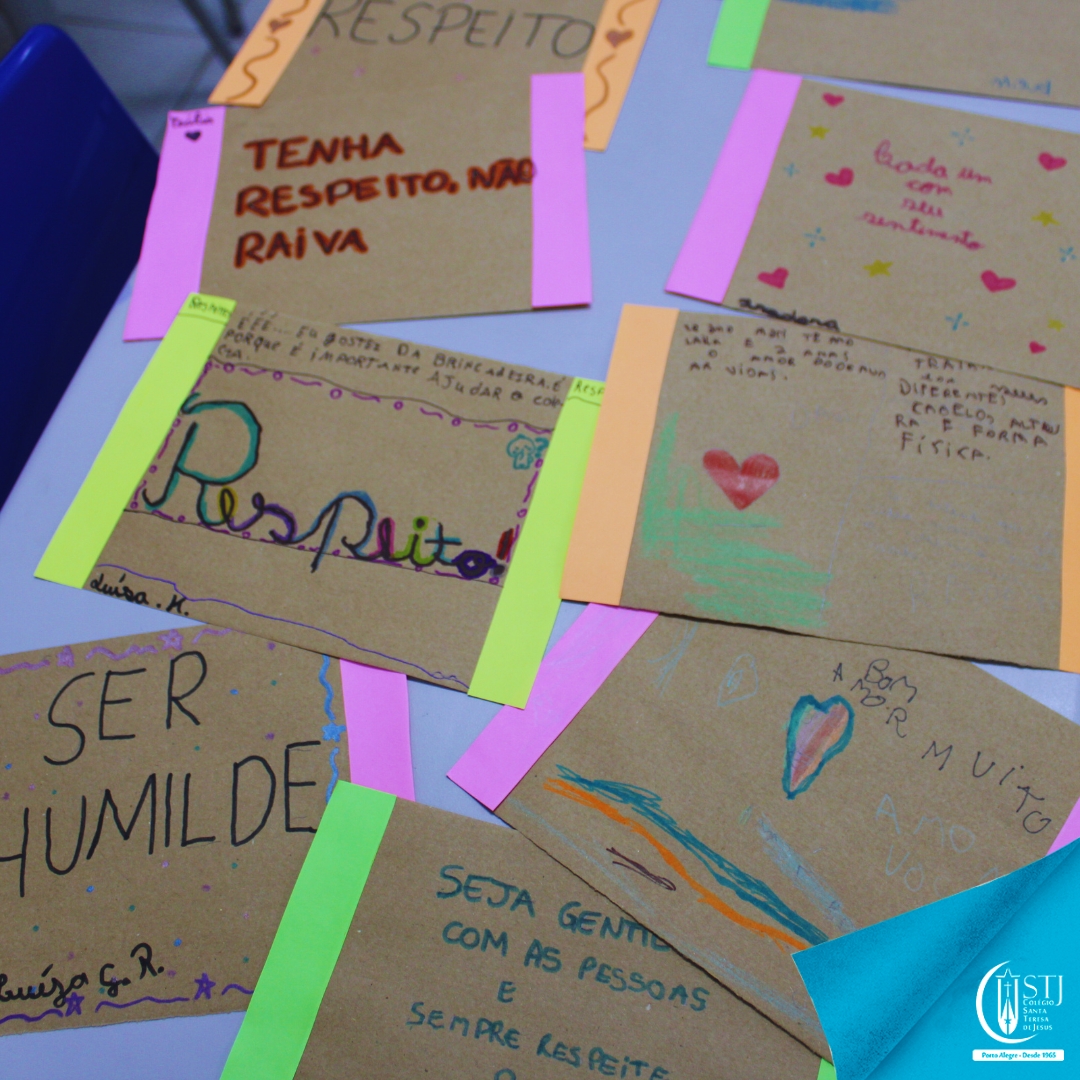 RESPEITO
TENHA
RESPEITO, NÃO
RAIVA
Cada um
com
seu
sentimento
Respeito
ÉÉÉ... EU GOSTEI DA BRINCADEIRA. É
PORQUE É IMPORTANTE AJUDAR O
Respeito!
Luísa. M.
O AMOR
AR VIDAS.
DIFERENTES
CABELOS, ALTU
RA E FORMA
FÍSICA.
SER
HUMILDE
Luíza G. R.
A BOM
AMOR
MUITO
AMO
SEJA GENTIL
COM AS PESSOAS
E
SEMPRE RESPEITE
O
STJ
COLÉGIO
SANTA
TERESA
DE JESUS
Porto Alegre - Desde 1965